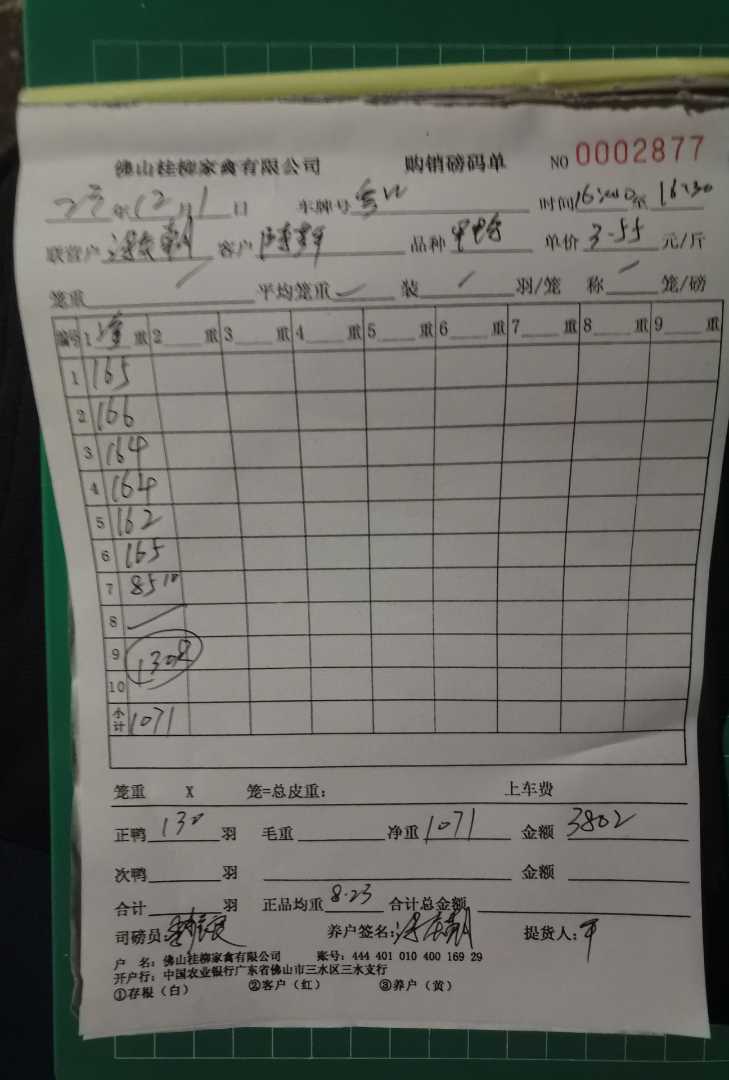 佛山桂柳家禽有限公司 购销磅码单 NO 0002877
23年12月1日 车牌号 时间16:00至16:30
联营户 客户 品种 单价3.55元/斤
笼重 平均笼重 装 羽/笼 称 笼/磅
编号 1 重 2 重 3 重 4 重 5 重 6 重 7 重 8 重 9 重
1 165
2 166
3 164
4 164
5 162
6 165
7 85 10
8
9 130只
10
小计 1071
笼重 X 笼=总皮重： 上车费
正鸭130羽 毛重 净重1071 金额3802
次鸭 羽 金额
合计 羽 正品均重8.23 合计总金额
司磅员： 养户签名： 提货人：平
户 名：佛山桂柳家禽有限公司 账号：444 401 010 400 169 29
开户行：中国农业银行广东省佛山市三水区三水支行
①存根（白） ②客户（红） ③养户（黄）